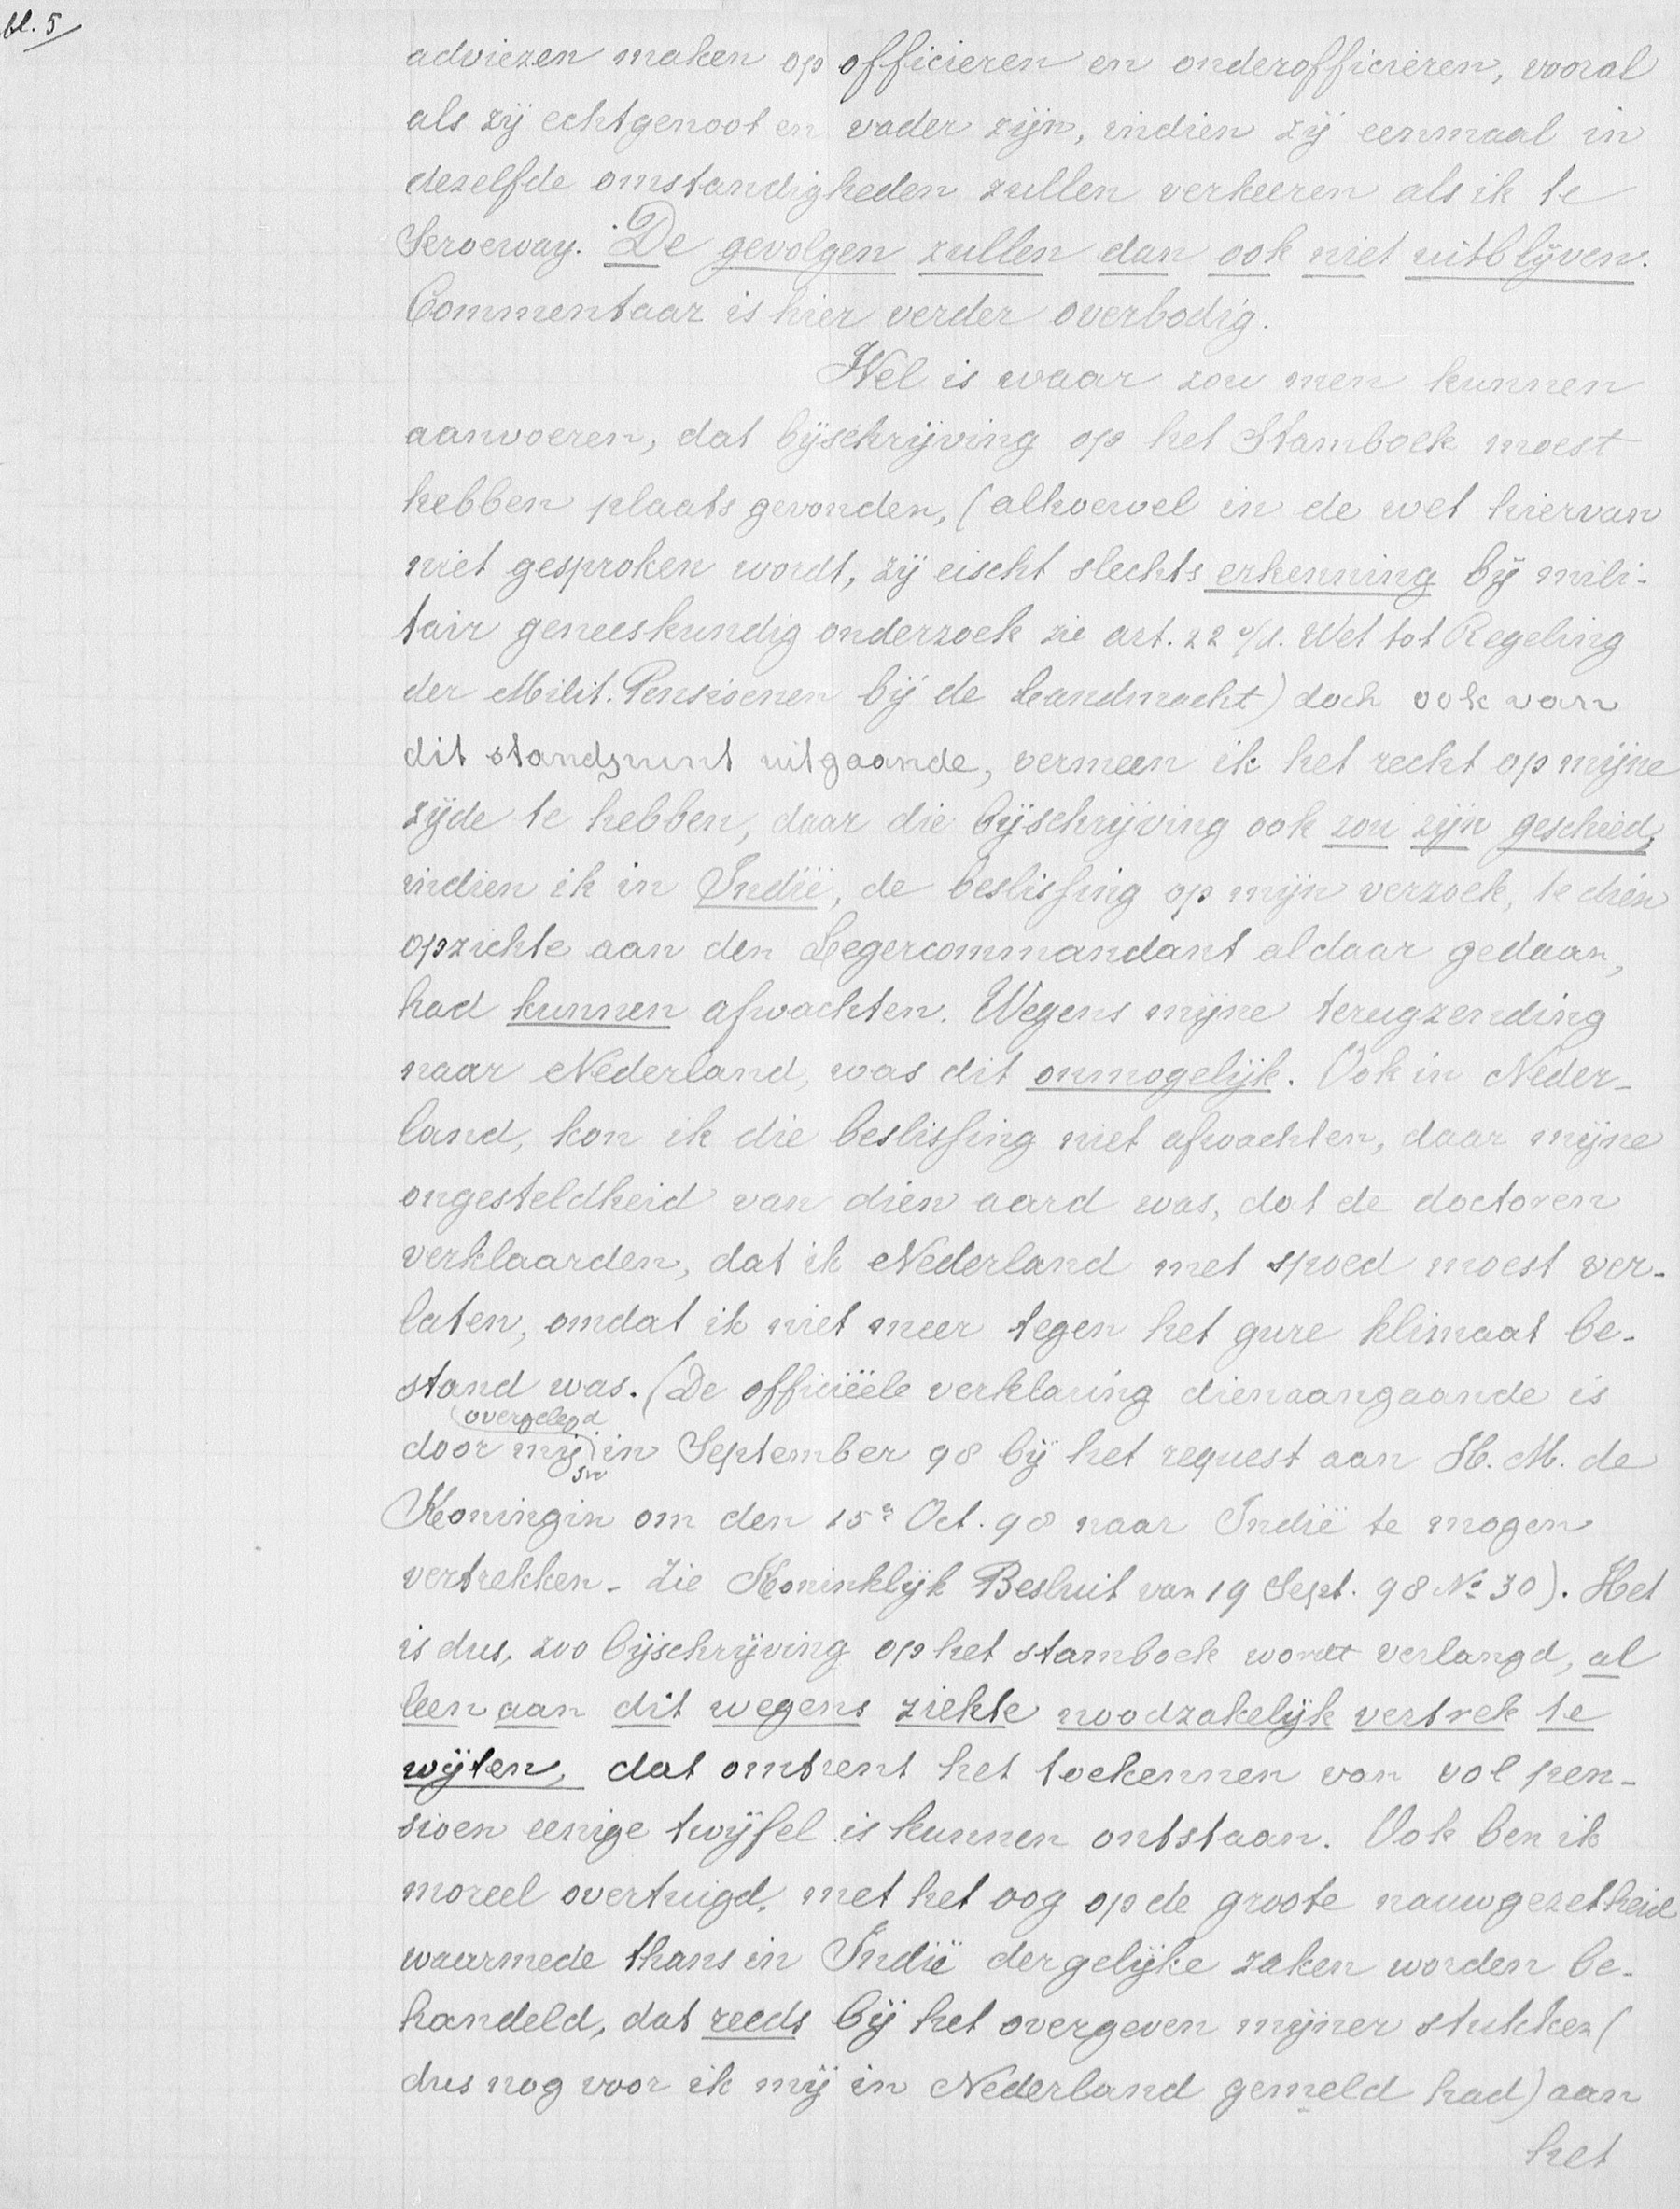 bl. 5
adviezen maken op officieren en onderofficieren, vooral
als zij echtgenoot en vader zijn, indien zij eenmaal in
dezelfde omstandigheden zullen verkeeren als ik te
Seroeway. De gevolgen zullen dan ook niet uitblijven.
Commentaar is hier verder overbodig.
Wel is waar zou men kunnen
aanvoeren, dat bijschrijving op het Stamboek moest
hebben plaats gevonden, (alhoewel in de wet hiervan
niet gesproken wordt, zij eischt slechts erkenning bij mili-
tair geneeskundig onderzoek zie art. 22 v/d. Wet tot Regeling
der Milit. Pensioenen bij de Landmacht) doch ook van
dit standpunt uitgaande, vermeen ik het recht op mijne
zijde te hebben, daar die bijschrijving ook zou zijn geschied,
indien ik in Indië, de beslissing op mijn verzoek, te dien
opzichte aan den Legercommandant aldaar gedaan,
had kunnen afwachten. Wegens mijne terugzending
naar Nederland, was dit onmogelijk. Ook in Neder-
land, kon ik die beslissing niet afwachten, daar mijne
ongesteldheid van dien aard was, dat de doctoren
verklaarden, dat ik Nederland met spoed moest ver-
laten, omdat ik niet meer tegen het gure klimaat be-
stand was. (De officiëele verklaring dienaangaande is
overgelegd
door mij in September 98 bij het request aan H. M. de
Koningin om den 15n Oct. 98 naar Indië te mogen
vertrekken - zie Koninklijk Besluit van 19 Sept. 98 No 30). Het
is dus, zoo bijschrijving op het stamboek wordt verlangd, al
leen aan dit wegens ziekte noodzakelijk vertrek te
wijten, dat omtrent het toekennen van vol pen-
sioen eenige twijfel is kunnen ontstaan. Ook ben ik
moreel overtuigd, met het oog op de groote nauwgezetheid
waarmede thans in Indië dergelijke zaken worden be-
handeld, dat reeds bij het overgeven mijner stukken (
dus nog voor ik mij in Nederland gemeld had) aan
het